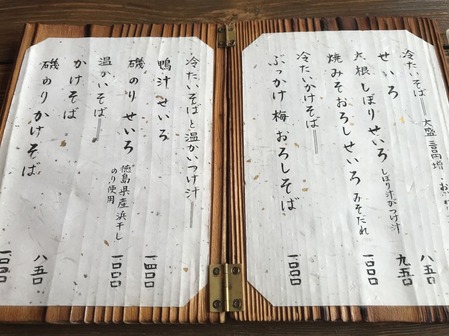 冷たいそば 大盛 円増
せいろ 八五〇
大根しぼりせいろ しぼり汁かつけ汁 九五〇
焼みそおろしせいろ みそだれ 一〇〇〇
冷たいかけそば
ぶっかけ 梅おろしそば 一〇〇〇
冷たいそばと温かいつけ汁
鴨汁せいろ 一四〇〇
磯のりせいろ 徳島県産浜干し
のり使用 一〇〇〇
温かいそば
かけそば 八五〇
磯のりかけそば 一〇〇〇